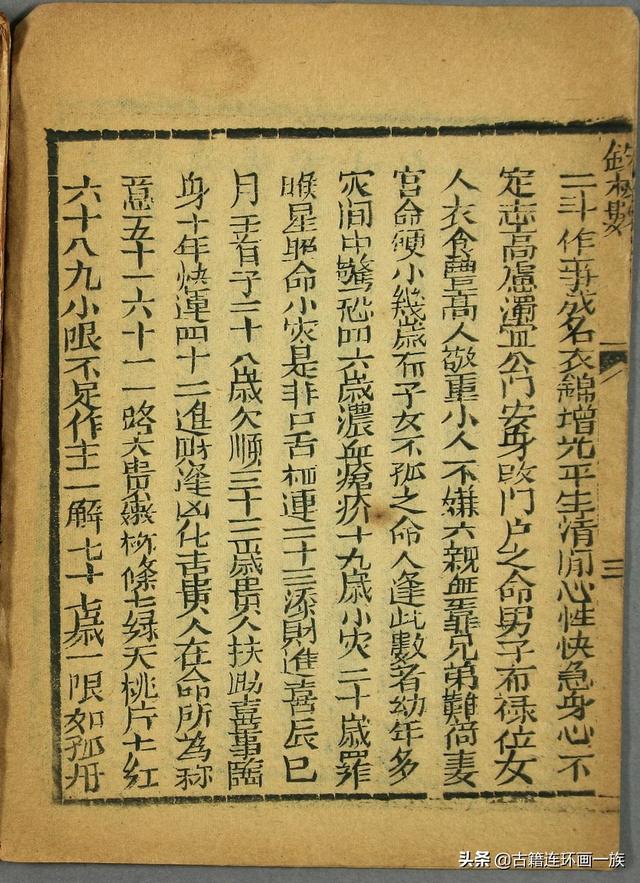 數
三
二斗作事成名衣錦增光平生清閒心性快急身心不
定志高慮濁宜公門安身改門户之命男子有禄位女
人衣食豐高人敬重小人不嫌六親無靠兄弟難倚妻
宮命硬小幾歲有子女不孤之命人逢此數者幼年多
灾间中驚恐四六歲濃血瘡疥十九歲小灾二十歲羅
睺星照命小灾是非口舌相連二十三添財進喜辰巳
月生首子二十八歲欠順三十三歲貴人扶助喜事臨
身十年快運四十二進財逢凶化吉貴人在命所為称
意五十一六十一路大貴嫩條七绿夭桃片七红
六十八九小限不足作主一解七十七歲一限如孤舟
头条 @古籍连环画一族